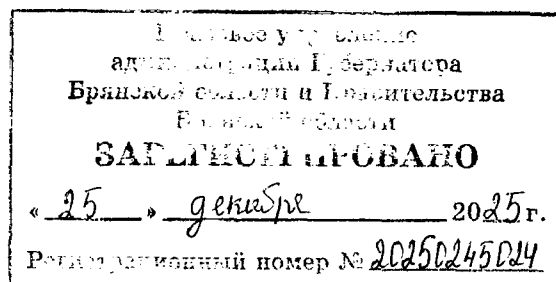 управление
администрации Губернатора
Брянской области и Правительства
Брянской области
ЗАРЕГИСТРИРОВАНО
« 25 » декабря 2025 г.
Регистрационный номер № 20250245024